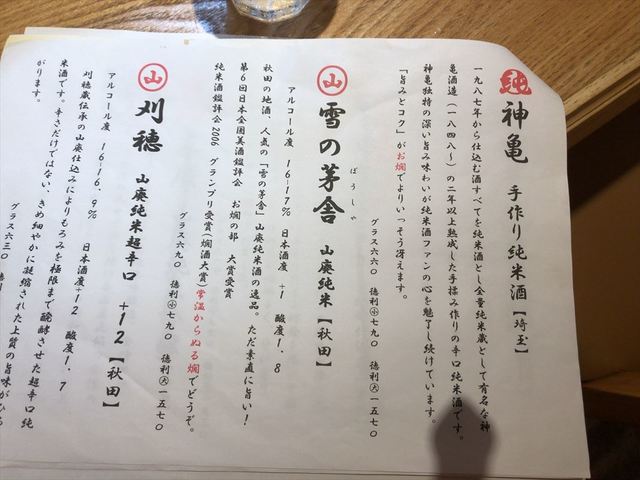 純 神亀 手作り純米酒【埼玉】
一九八七年から仕込む酒すべてを純米酒とし全量純米蔵として有名な神
亀酒造（一八四八～）の二年以上熟成した手揉み作りの辛口純米酒です。
神亀独特の深い旨み味わいが純米酒ファンの心を魅了し続けています。
「旨みとコク」がお燗でよりいっそう冴えます。
グラス六六〇 徳利小七九〇 徳利大一五七〇
山 雪の茅舎 山廃純米【秋田】
ぼうしゃ
アルコール度 16~17% 日本酒度 +1 酸度1.8
秋田の地酒、人気の「雪の茅舎」山廃純米酒の逸品。ただ素直に旨い！
第6回日本全国美酒鑑評会 お燗の部 大賞受賞
純米酒鑑評会2006 グランプリ受賞(燗酒大賞)常温からぬる燗でどうぞ。
グラス六九〇 徳利小七九〇 徳利大一五七〇
山 刈穂 山廃純米超辛口 +12【秋田】
アルコール度 16~16.9% 日本酒度+12 酸度1.7
刈穂蔵伝承の山廃仕込みによりもろみを極限まで醗酵させた超辛口純
米酒です。辛さだけではない、きめ細やかに凝縮された上質の旨味がひろ
がります。
グラス六三〇